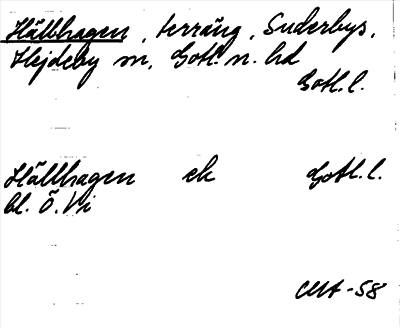 Hällhagen, terräng, Suderbys,
Hejdeby sn, Gotl. n. hd
Gotl. l.
Hällhagen ek Gotl. l.
bl. Ö. Vi
CMA-58